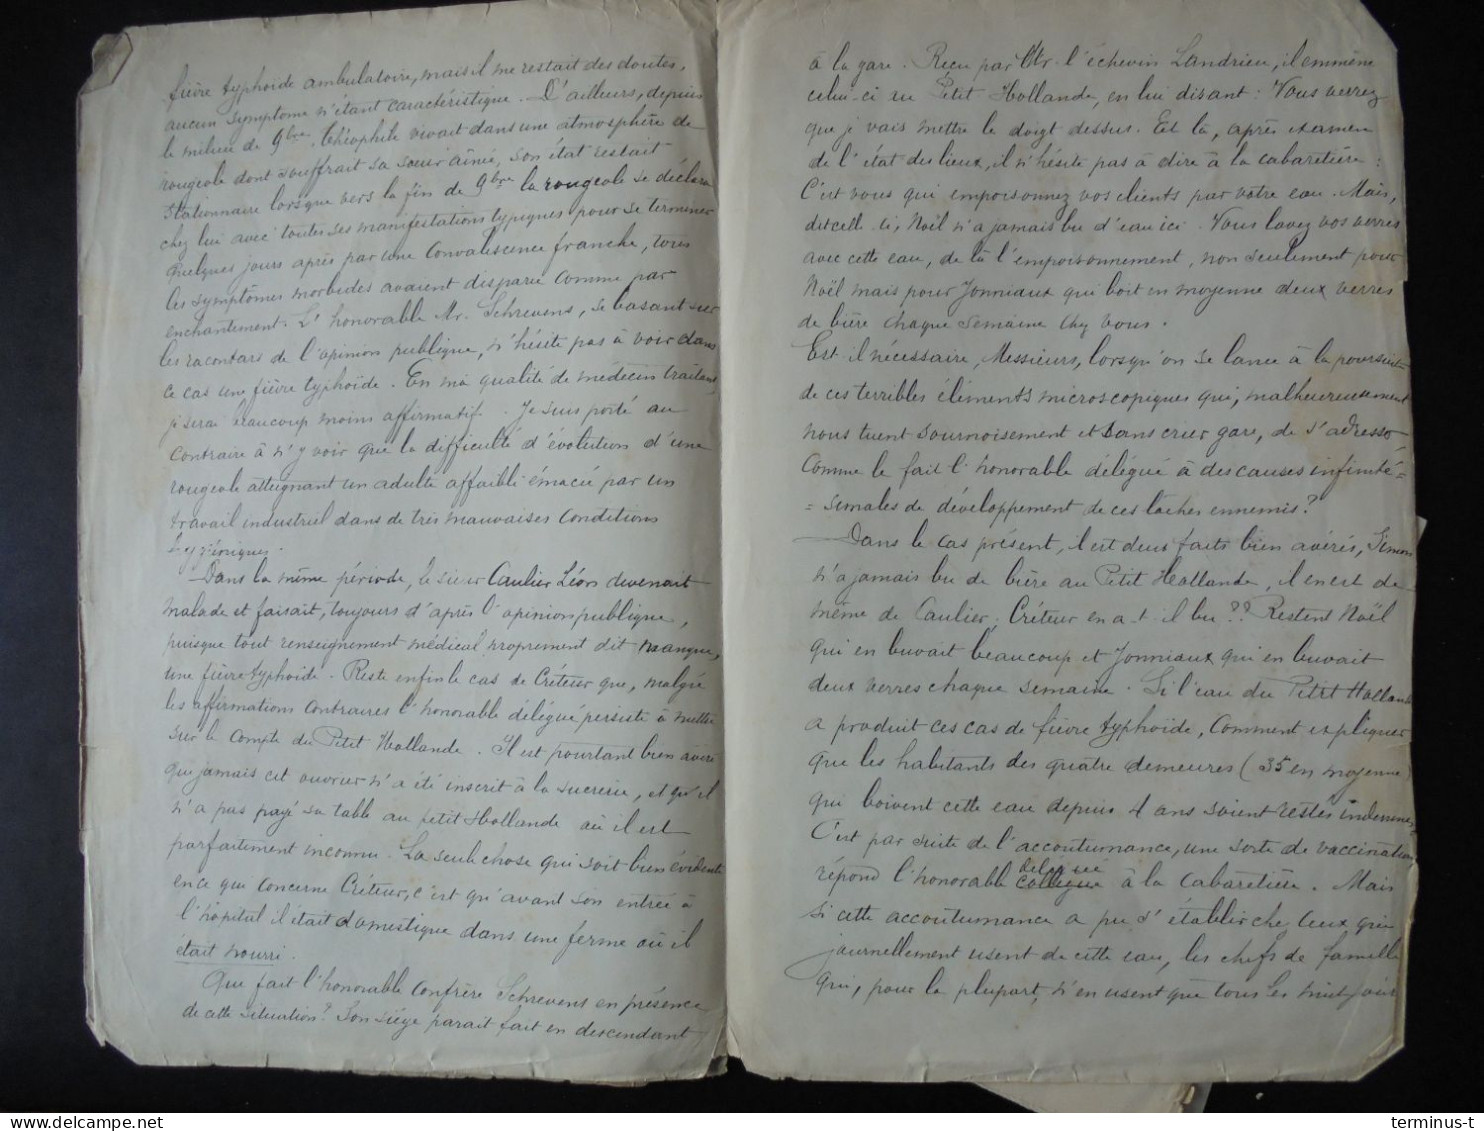 fièvre typhoïde ambulatoire, mais il me restait des doutes,
aucun symptome n'étant caractéristique. D'ailleurs, depuis
le milieu de 9bre Théophile vivait dans une atmosphère de
rougeole dont souffrait sa sœur aînée, son état restait
stationnaire lorsque vers la fin de 9bre la rougeole se déclara
chez lui avec toutes ses manifestations typiques pour se terminer
quelques jours après par une convalescence franche, tous
les symptômes morbides avaient disparu comme par
enchantement. L'honorable Mr. Schrevens, se basant sur
les racontars de l'opinion publique, n'hésite pas à voir dans
ce cas une fièvre typhoïde. En ma qualité de médecin traitant
je serai beaucoup moins affirmatif. Je suis porté au
contraire à n'y voir que la difficulté d'évolution d'une
rougeole atteignant un adulte affaibli émacié par un
travail industriel dans de très mauvaises conditions
hygiéniques.
Dans la même période, le sieur Caulier Léon devenait
malade et faisait, toujours d'après l'opinion publique,
puisque tout renseignement médical proprement dit manque,
une fièvre typhoïde. Reste enfin le cas de Créteur que, malgré
les affirmations contraires l'honorable délégué persiste à mettre
sur le compte du Petit Hollande. Il est pourtant bien avéré
que jamais cet ouvrier n'a été inscrit à la sucrerie, et qu'il
n'a pas payé sa table au petit Hollande où il est
parfaitement inconnu. La seule chose qui soit bien évidente
en ce qui concerne Créteur, c'est qu'avant son entrée à
l'hôpital il était domestique dans une ferme où il
était nourri.
Que fait l'honorable confrère Schrevens en présence
de cette situation? Son siège parait fait en descendant
à la gare. Recu par Mr. l'échevin Landrieu, il emmène
celui-ci au Petit Hollande, en lui disant: Vous verrez
que je vais mettre le doigt dessus. Et là, après examen
de l'état des lieux, il n'hésite pas à dire à la cabaretière:
C'est vous qui empoisonnez vos clients par votre eau. Mais,
dit celle-ci, Noël n'a jamais bu d'eau ici. Vous lavez vos verres
avec cette eau, de là l'empoisonnement, non seulement pour
Noël mais pour Jonniaux qui boit en moyenne deux verres
de bière chaque semaine chez vous.
Est-il nécessaire, Messieurs, lorsqu'on se lance à la poursuite
de ces terribles éléments microscopiques qui, malheureusement
nous tuent sournoisement et sans crier gare, de s'adresser
comme le fait l'honorable délégué à des causes infinité-
=simales de développement de ces lâches ennemis?
Dans le cas présent, il est deux faits bien avérés, Simon
n'a jamais bu de bière au Petit Hollande, il en est de
même de Caulier; Créteur en a-t-il bu?? Restent Noël
qui en buvait beaucoup et Jonniaux qui en buvait
deux verres chaque semaine. Si l'eau du Petit Hollande
a produit ces cas de fièvre typhoïde, comment expliquer
que les habitants des quatre demeures (35 en moyenne)
qui boivent cette eau depuis 4 ans soient restés indemnes,
C'est par suite de l'accoutumance, une sorte de vaccination
délégué
répond l'honorable collègue à la cabaretière. Mais
si cette accoutumance a pu s'établir chez ceux qui
journellement usent de cette eau, les chefs de famille
qui, pour la plupart, n'en usent que tous les huit jours
terminus-t